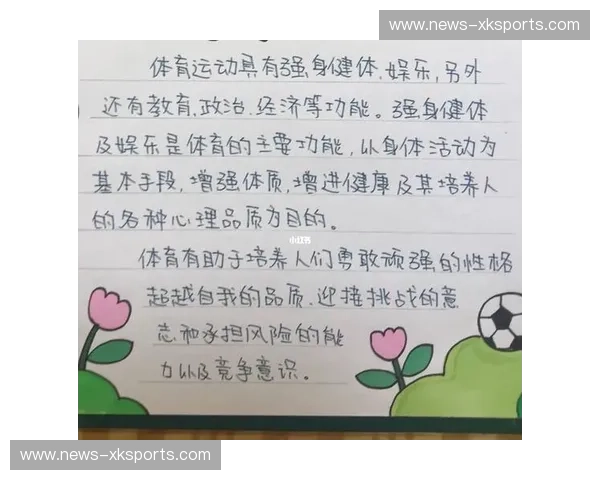 www.news-xksports.com
体育运动具有强身健体、娱乐,另外
还有教育、政治、经济等功能。强身健体
及娱乐是体育的主要功能,以身体活动为
基本手段,增强体质,增进健康及其培养人
的各种心理品质为目的。
小红书
体育有助于培养人们勇敢顽强的性格
超越自我的品质、迎接挑战的意
志和承担风险的能
力以及竞争意识。
www.news-xksports.com